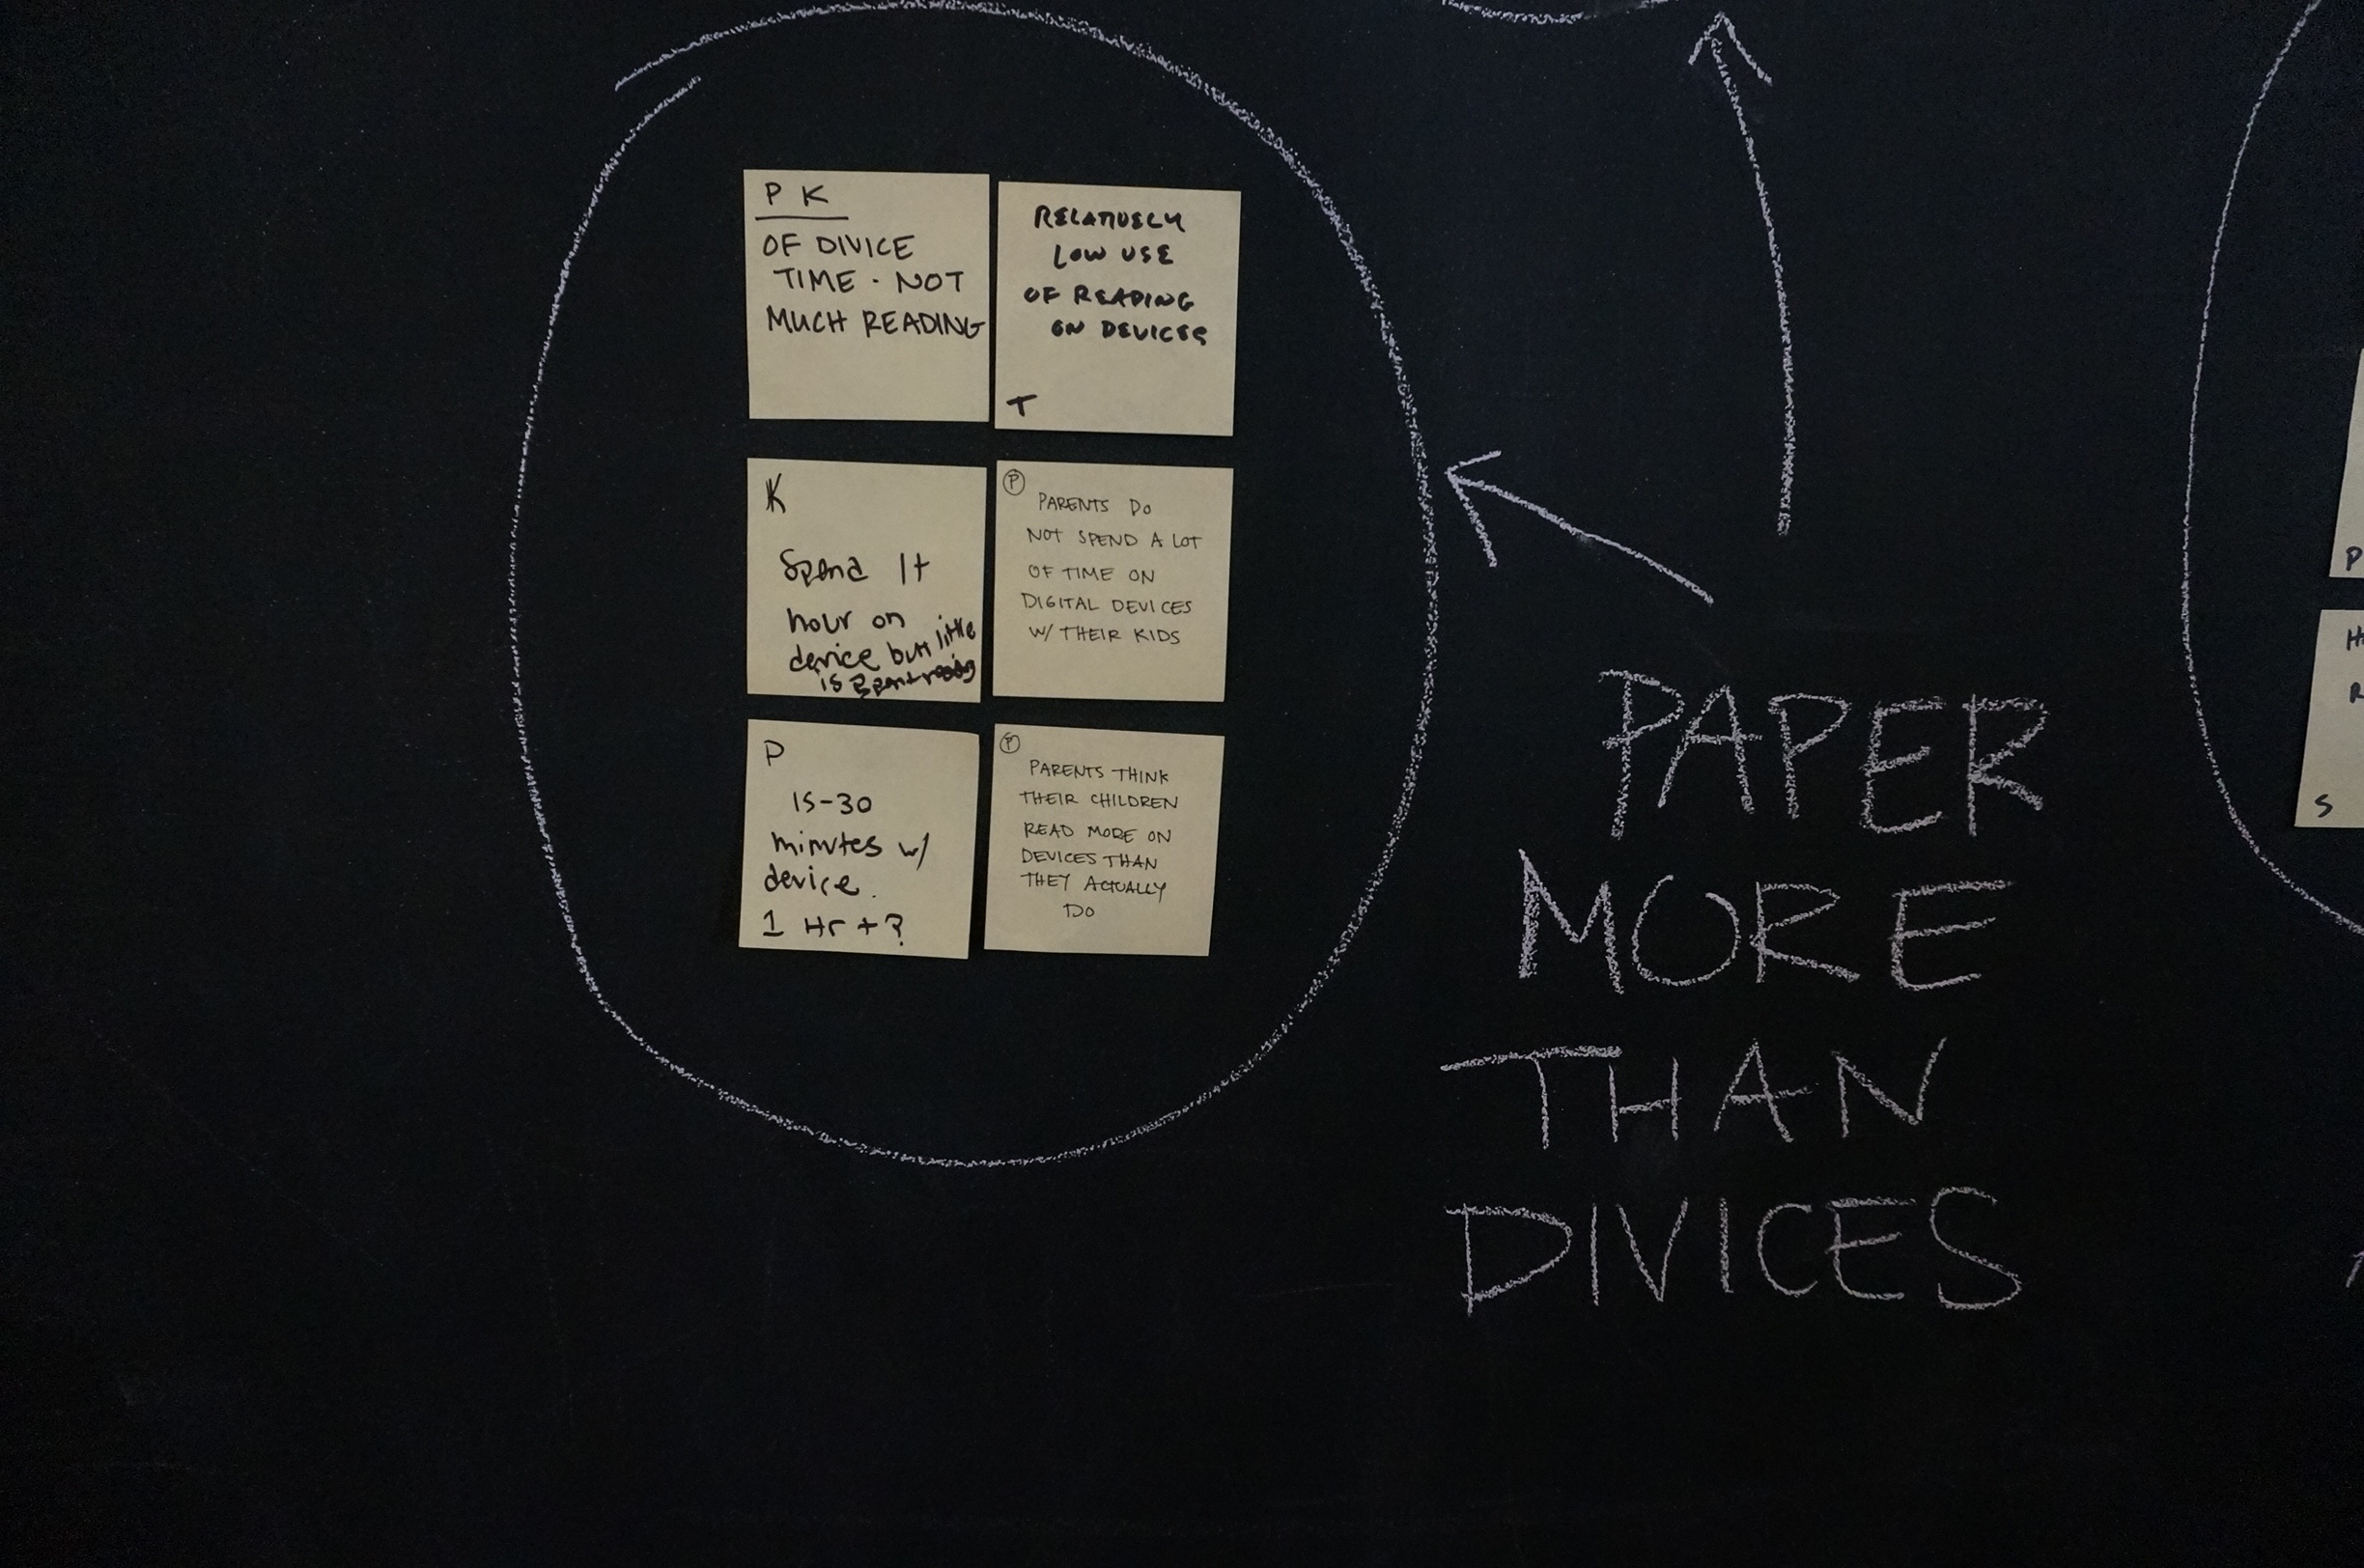 P K
OF DIVICE
TIME · NOT
MUCH READING
RELATIVELY
LOW USE
OF READING
ON DEVICES
T
K
Spend 1+
hour on
device but little
is spent reading
P
PARENTS DO
NOT SPEND A LOT
OF TIME ON
DIGITAL DEVICES
W/ THEIR KIDS
P
15-30
minutes w/
device.
1 Hr +?
P
PARENTS THINK
THEIR CHILDREN
READ MORE ON
DEVICES THAN
THEY ACTUALLY
DO
PAPER
MORE
THAN
DIVICES
P
S